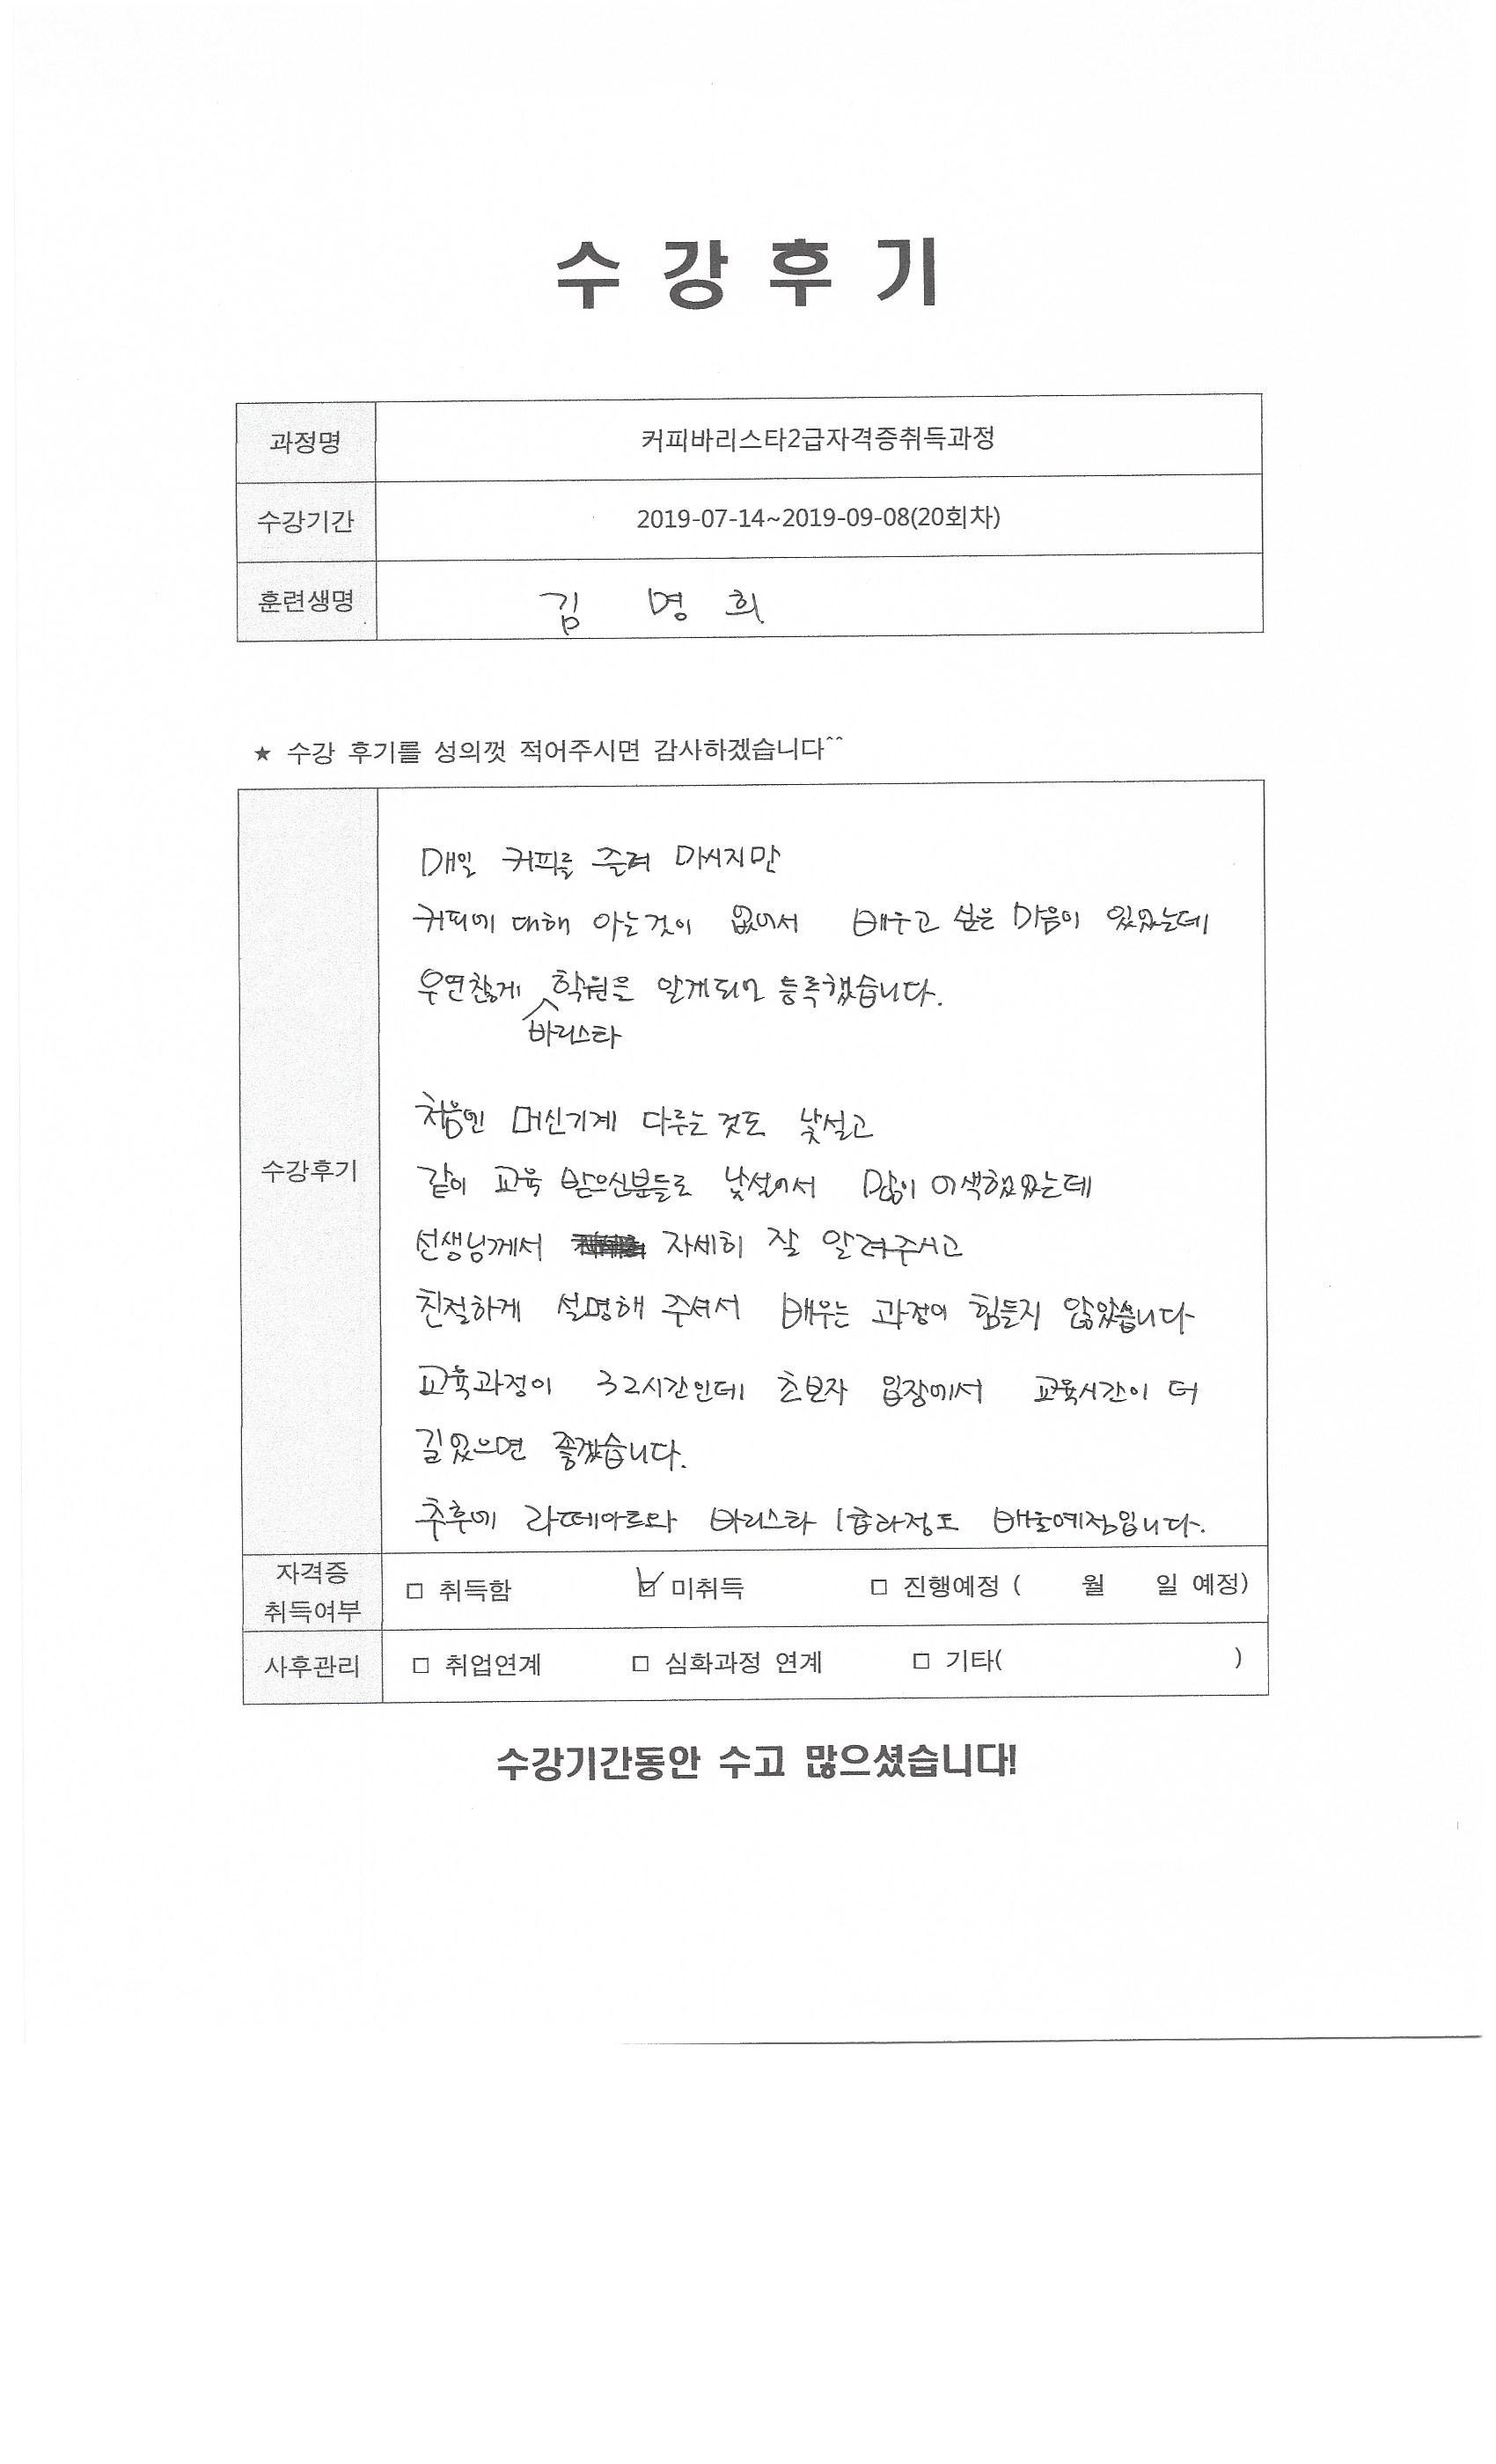 수 강 후 기
과정명 커피바리스타2급자격증취득과정
수강기간 2019-07-14~2019-09-08(20회차)
훈련생명 김 명 희
★ 수강 후기를 성의껏 적어주시면 감사하겠습니다^^
수강후기
매일 커피를 즐겨 마시지만
커피에 대해 아는것이 없어서 배우고 싶은 마음이 있었는데
우연찮게 학원을 알게되어 등록했습니다.
바리스타
처음엔 머신기계 다루는 것도 낯설고
같이 교육 받으신분들도 낯설어서 많이 어색했었는데
선생님께서 자세히 잘 알려주시고
친절하게 설명해 주셔서 배우는 과정이 힘들지 않았습니다
교육과정이 32시간인데 초보자 입장에서 교육시간이 더
길었으면 좋겠습니다.
추후에 라떼아트와 바리스타 1급과정도 배울예정입니다.
자격증
취득여부
□ 취득함 ☑ 미취득 □ 진행예정 ( 월 일 예정)
사후관리 □ 취업연계 □ 심화과정 연계 □ 기타( )
수강기간동안 수고 많으셨습니다!